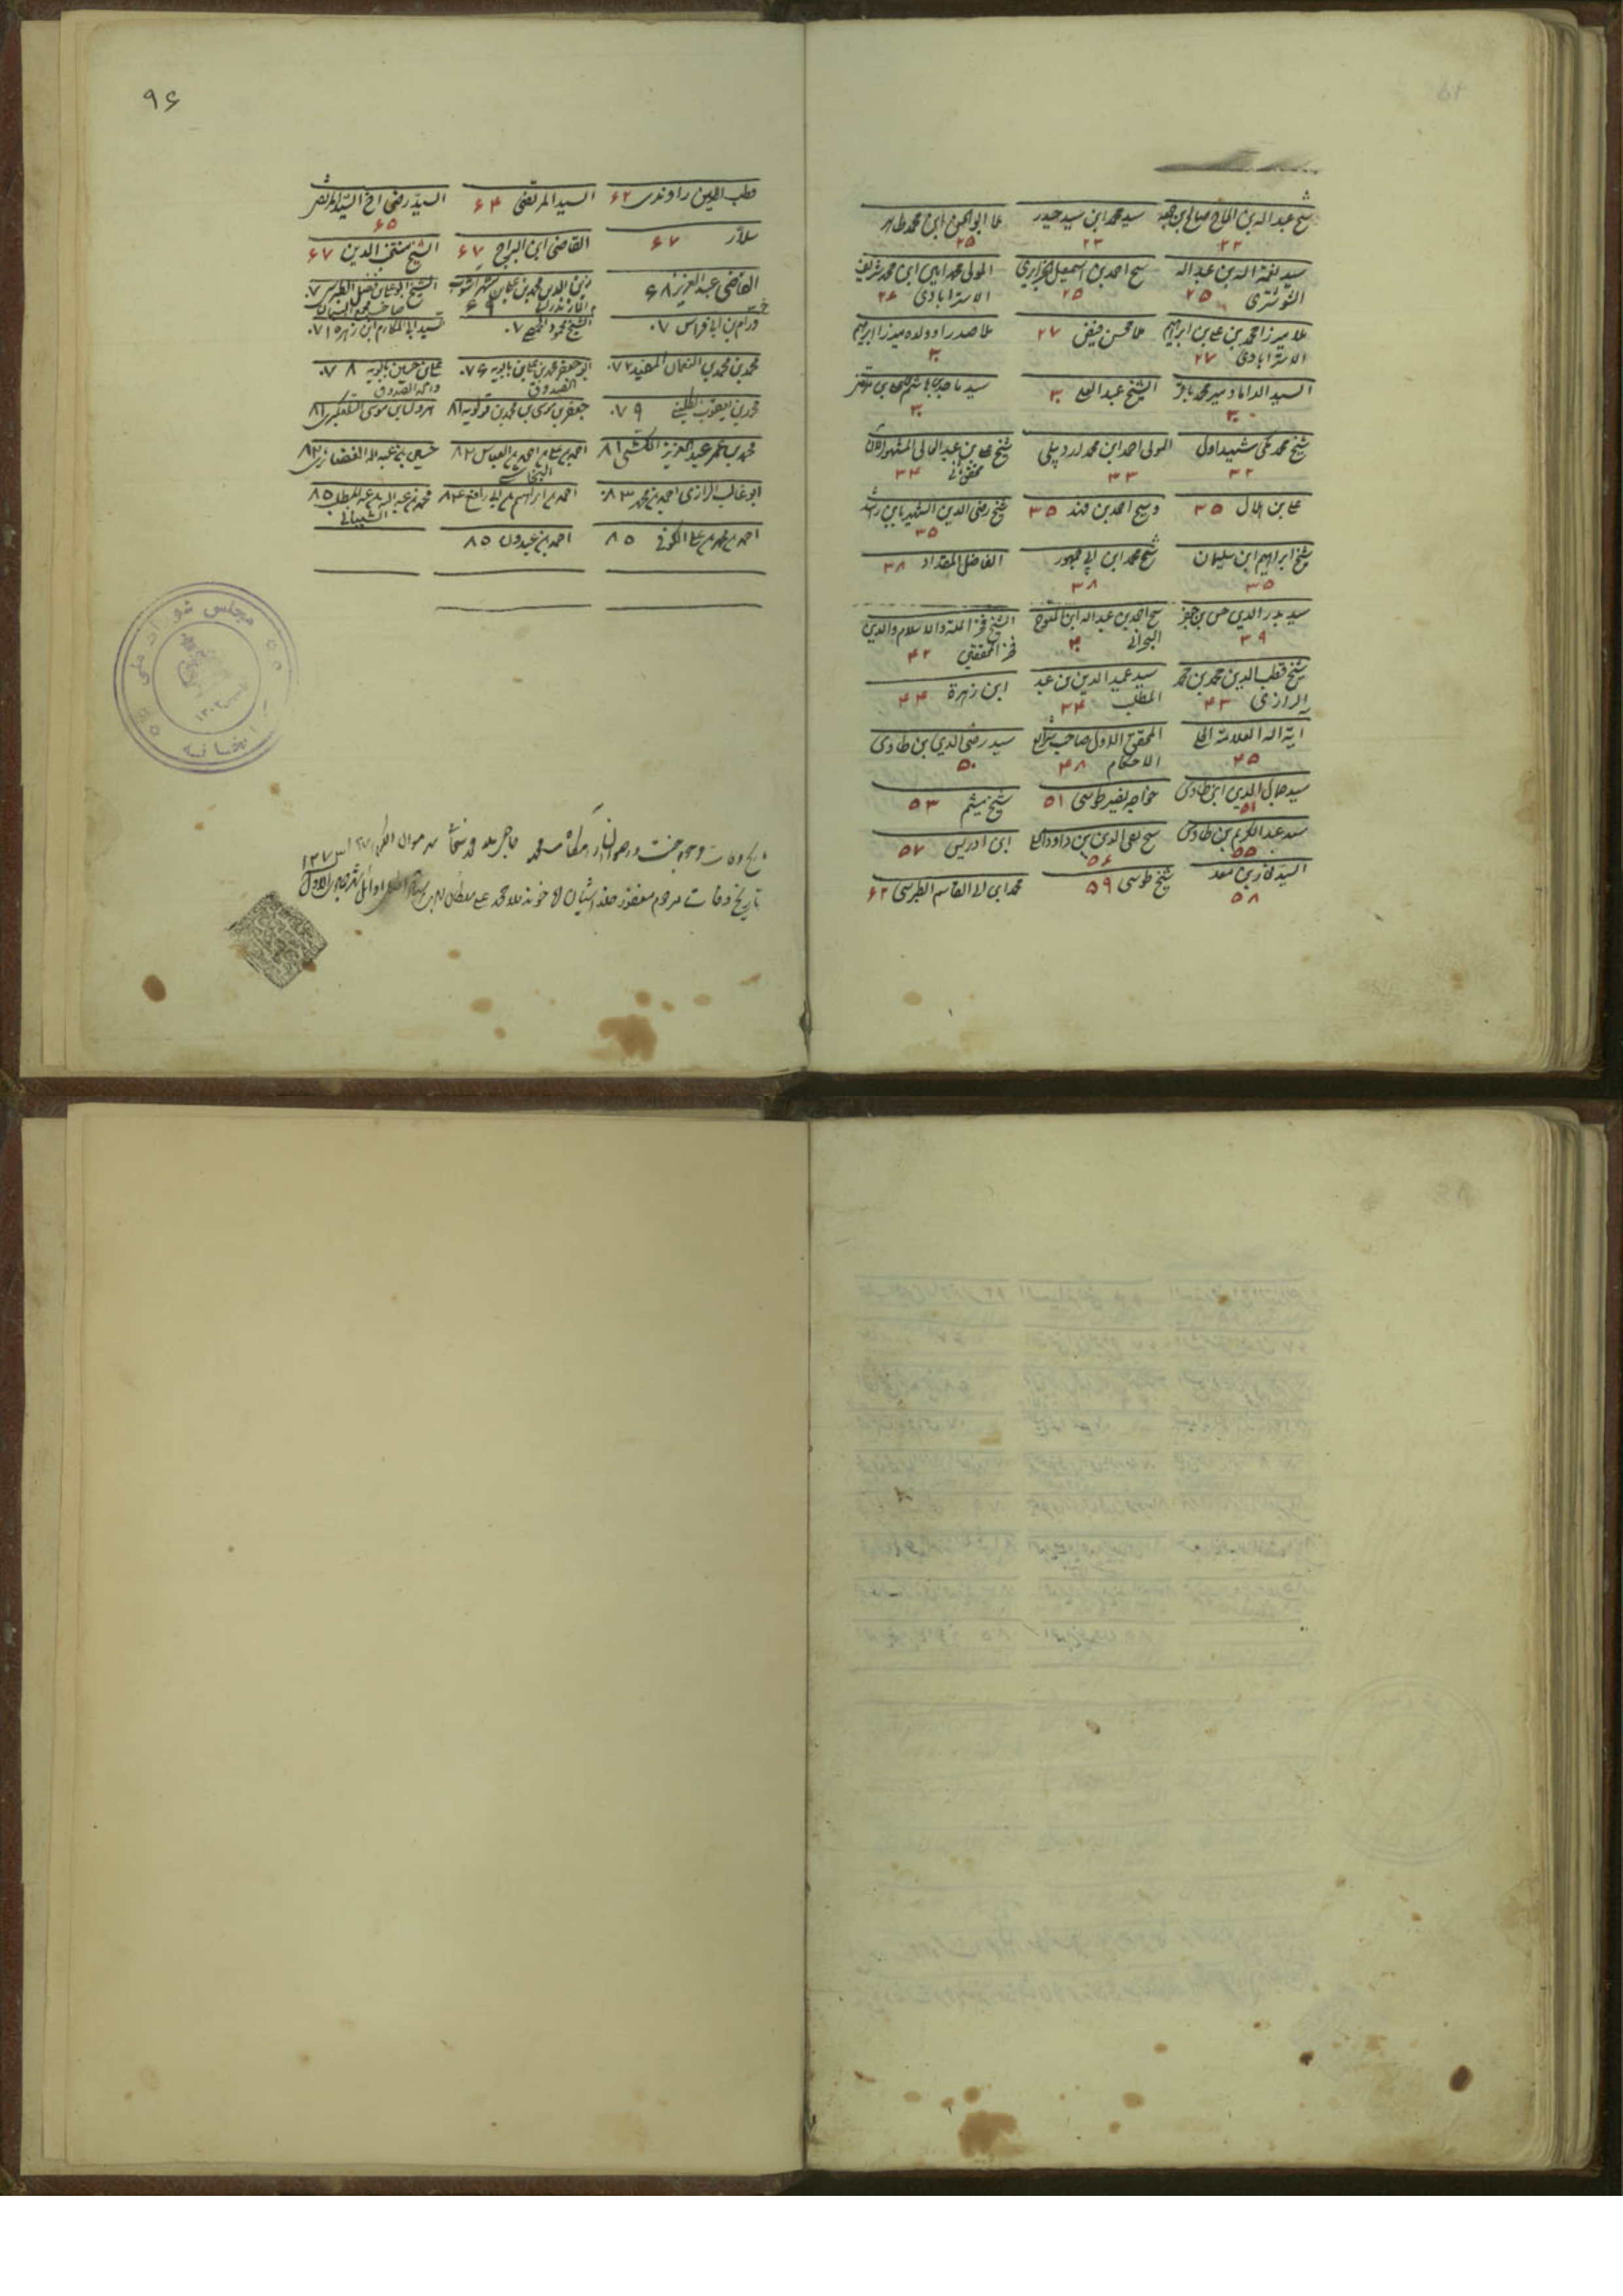 شیخ عبدالله بن الحاج صالح بن جمعه ۲۲ سید محمد ابن سید حیدر ۲۳ ملا ابوالحسن ابن محمد طاهر ۲۵
سید نعمة الله بن عبدالله التوشتری ۲۵ شیخ احمد بن اسمعیل الجزایری ۲۵ المولی محمد امین ابن محمد شریف الاسترابادی ۲۶
ملا میرزا محمد بن علی بن ابراهیم الاسترابادی ۲۷ ملا محسن فیض ۲۷ ملا صدرا و ولده میرزا ابراهیم ۳۰
السید الداماد میر محمد باقر ۳۰ الشیخ عبدالعلی ۳۰ سید ماجد بن هاشم ۳۰
شیخ محمد مکی شهید اول ۳۲ المولی احمد ابن محمد اردبیلی ۳۳ شیخ علی بن عبدالعالی المشهور محقق ثانی ۳۴
علی بن هلال ۳۵ و شیخ احمد بن فهد ۳۵ شیخ رضی الدین الشهیر بابن راشد ۳۵
شیخ ابراهیم ابن سلیمان ۳۵ شیخ محمد ابن ابی جمهور ۳۸ الفاضل المقداد ۳۸
سید بدر الدین حسن بن جعفر ۳۹ شیخ احمد بن عبدالله ابن المتوج البحرانی ۴۰ الشیخ فخر الملة والاسلام والدین فخر المحققین ۴۲
شیخ قطب الدین محمد بن محمد الرازی ۴۳ سید عمید الدین بن عبد المطلب ۴۴ ابن زهرة ۴۴
آیة الله العلامة الحلی ۴۵ المحقق الاول صاحب شرایع الاحکام ۴۸ سید رضی الدین بن طاوس ۵۰
سید جمال الدین ابن طاوس ۵۱ خواجه نصیر طوسی ۵۱ شیخ میثم ۵۳
سید عبدالکریم بن طاوس ۵۵ شیخ تقی الدین بن داود ۵۶ ابن ادریس ۵۷
السید فخار بن معد ۵۸ شیخ طوسی ۵۹ محمد ابن ابی القاسم الطبرسی ۶۲
۹۶
قطب الدین راوندی ۶۲ السید المرتضی ۶۴ السید رضی اخ السید المرتضی ۶۵
سلار ۶۷ القاضی ابن البراج ۶۷ الشیخ منتجب الدین ۶۷
القاضی عبدالعزیز ۶۸ زین الدین محمد بن علی بن شهر آشوب المازندرانی ۶۹ الشیخ ابو علی بن فضل الطبرسی صاحب مجمع البیان ۷۰
ورام بن ابی فراس ۷۰ الشیخ محمود الحمصی ۷۰ سید ابی المکارم ابن زهره ۷۱
محمد بن محمد بن النعمان المفید ۷۲ ابو جعفر محمد بن علی بن بابویه الصدوق ۷۶ علی بن حسین بابویه والد الصدوق ۷۸
محمد بن یعقوب الکلینی ۷۹ جعفر بن محمد بن قولویه ۸۱ هرون بن موسی التلعکبری ۸۱
محمد بن عمر عبدالعزیز الکشی ۸۱ احمد بن علی بن احمد بن العباس النجاشی ۸۲ حسین بن عبیدالله الغضائری ۸۲
ابو غالب الرازی احمد بن محمد ۸۳ احمد بن ابراهیم بن ابی رافع ۸۴ محمد بن عبدالله بن عبدالمطلب الشیبانی ۸۵
احمد بن محمد بن علی الکوفی ۸۵ احمد بن عبدون ۸۵
مجلس شورای ملی
کتابخانه
تاریخ وفات
تاریخ وفات مرحوم مغفور آخوند ملا محمد علی